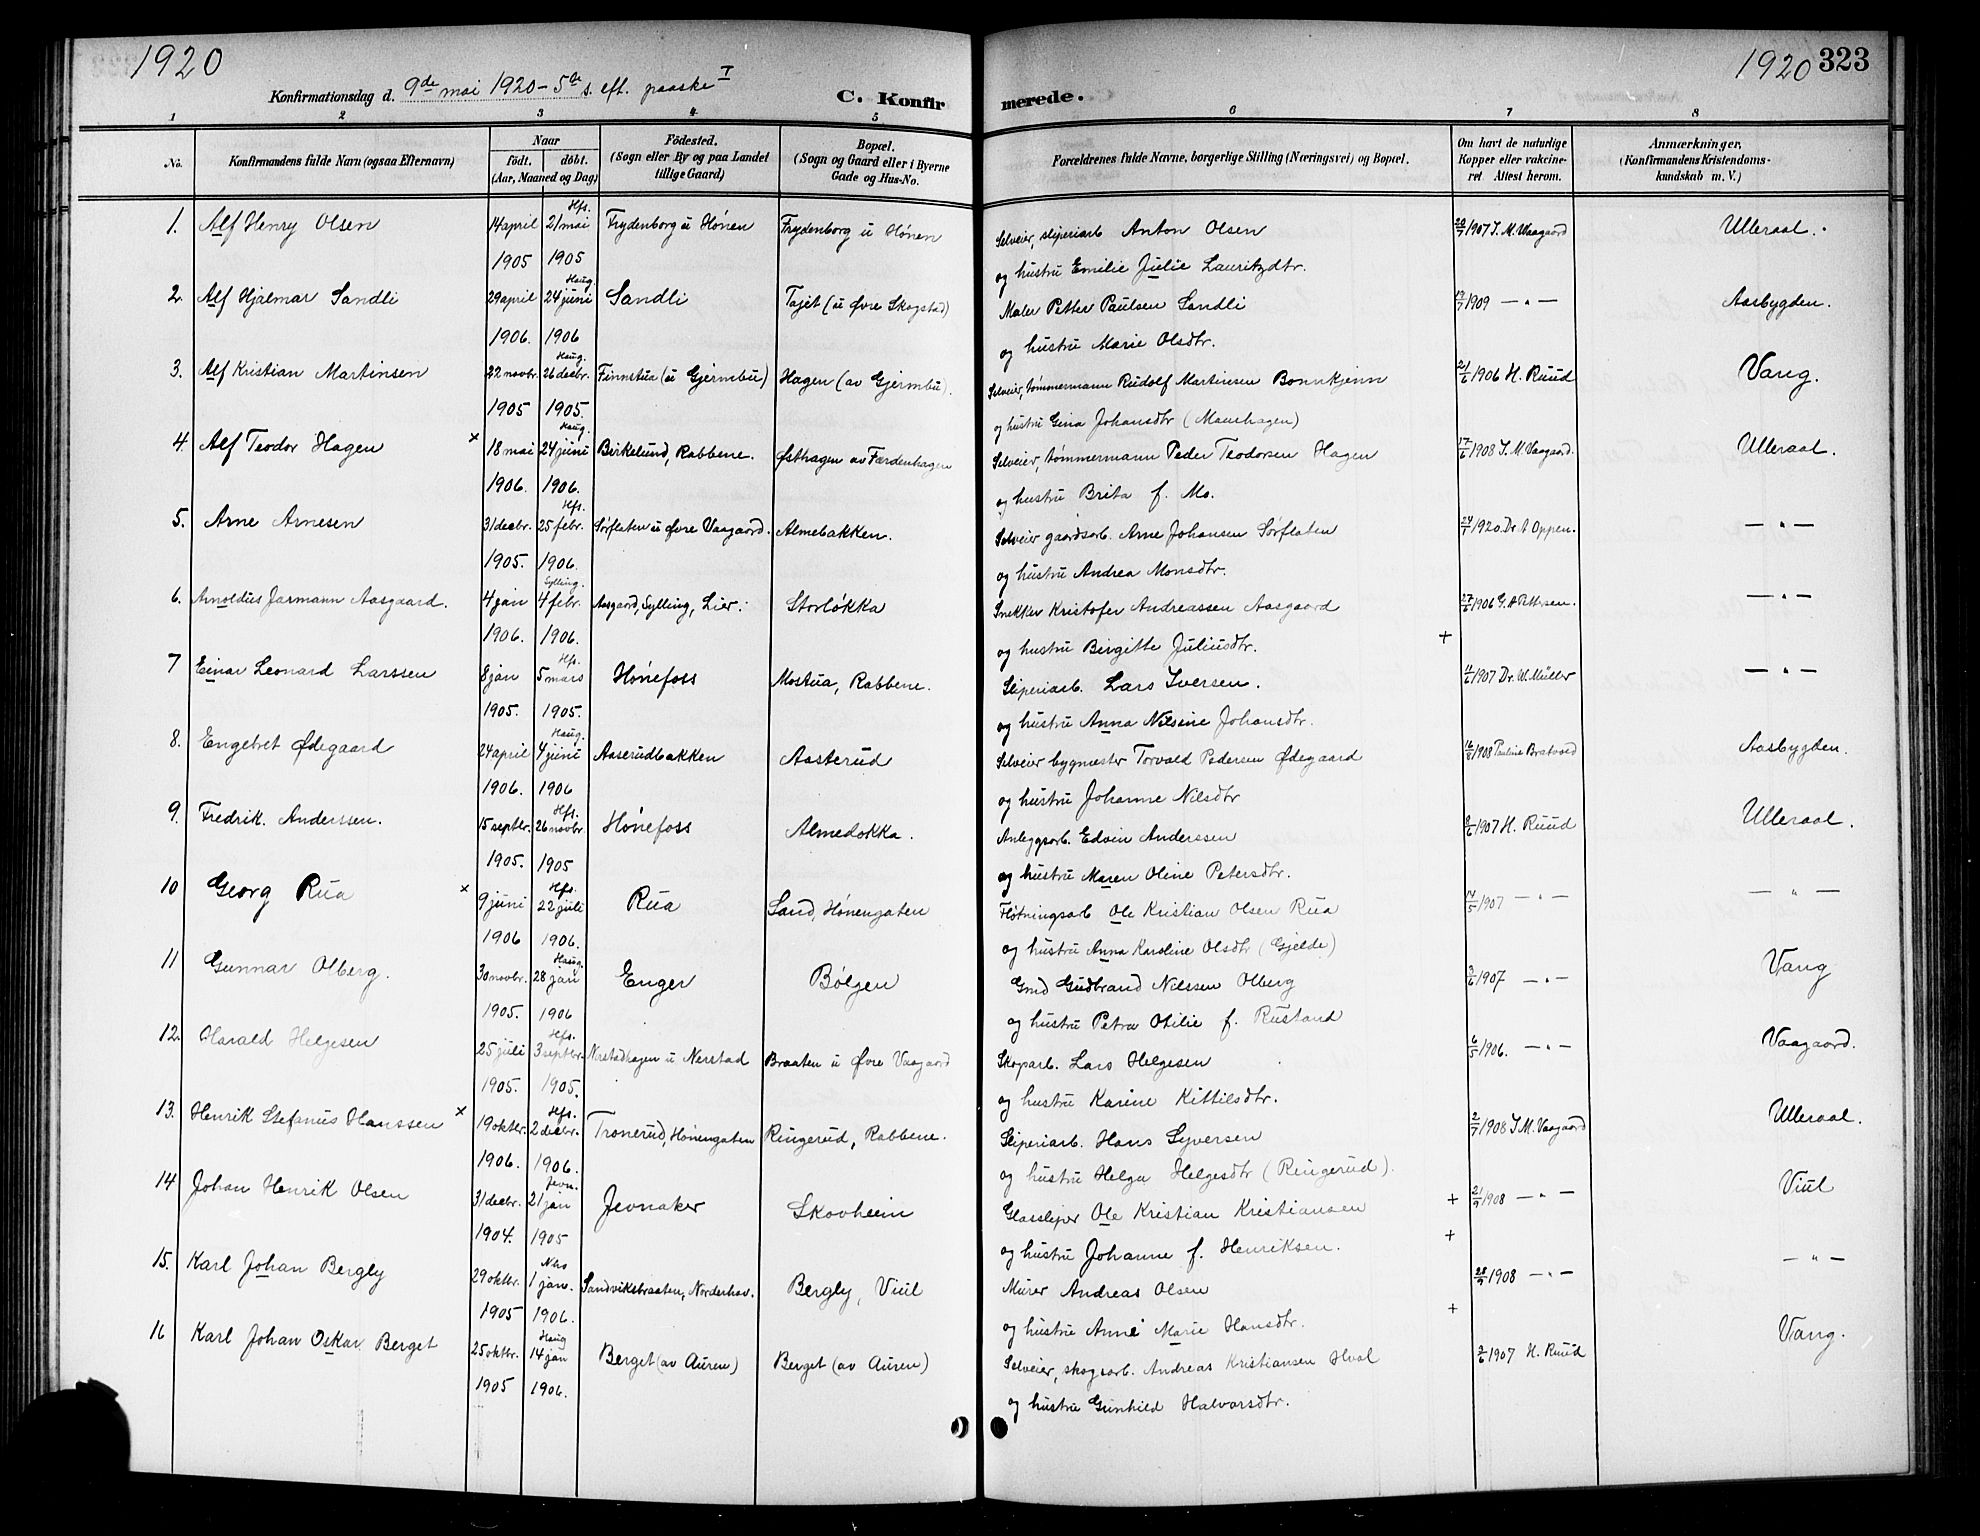 1920
1920 323
Konfirmationsdag d. 9de mai 1920 - 5te s. eft. paaske I C. Konfirmerede.
1 2 3 4 5 6 7 8
No. Konfirmandens fulde Navn (ogsaa Efternavn) Naar født. døbt. (Aar, Maaned og Dag) Födested. (Sogn eller By og paa Landet tillige Gaard) Bopæl. (Sogn og Gaard eller i Byerne Gade og Hus-No. Forældrenes fulde Navne, borgerlige Stilling (Næringsvei) og Bopæl. Om havt de naturlige Kopper eller vakcineret Attest herom. Anmærkninger, (Konfirmandens Kristendomskundskab m. V.)
Hfs.
1. Alf Henry Olsen 14 april 21 mai Frydenborg u Hönen Frydenborg u Hönen Selveier, sliperiarb Anton Olsen 29/7 1907 J. M. Vaagaard Ulleraal.
1905 1905 og hustru Emilie Julie Lauritzdtr.
Haug.
2. Alf Hjalmar Sandli 29 april 24 juni Sandli Tajet (u Øvre Skogstad) Maler Petter Paulsen Sandli 17/7 1909 — " — Aasbygden.
1906. 1906 og hustru Marie Olsdtr.
Haug.
3. Alf Kristian Martinsen 22 novbr. 26 decbr. Finnstua (u Gjermbu) Hagen (av Gjermbu). Selveier, tømmermann Rudolf Martinsen Bonnkjenn 21/6 1906 H. Ruud Vang.
1905 1905. og hustru Gina Johansdtr (Maurhagen)
Haug.
4. Alf Teodor Hagen × 18 mai 24 juni Birkelund, Rabbene. Østhagen av Færdenhagen Selveier, tømmermann Peder Teodorsen Hagen 17/6 1908 J. M. Vaagaard. Ulleraal.
1906. 1906. og hustru Brita f. Mo.
Hfs.
5. Arne Arnesen 31 decbr. 25 febr. Sørflaten u Øvre Vaagaard. Almebakken. Selveier gaardsarb. Arne Johansen Sørflaten 24/4 1920. Dr. A Oppen. — " —
1905. 1906. og hustru Andrea Monsdtr.
Sylling.
6. Arnoldus Jarmann Aasgaard. 4 jan 4 febr. Aasgaard, Sylling, Lier. Storløkka Snekker Kristofer Andreassen Aasgaard 27/6 1906 G. A Pettersen. — " —
1906. 1906. og hustru Birgitte Juliusdtr. +
Hfs.
7 Einar Leonard Larssen 8 jan 5 mars Hønefoss Mostua, Rabbene. Sliperiarb. Lars Iversen. 11/6 1907 Dr. M. Müller — " —
1905. 1905. og hustru Anna Nilsine Johansdtr.
Haug.
8. Engebret Ødegaard 24 april 4 juni Aaserudbakken Aasterud Selveier bygmester Torvald Pedersen Ødegaard 16/8 1908 Pauline Bratvold Aasbygden.
1906. 1906 og hustru Johanne Nilsdtr
Hfs.
9. Fredrik Anderssen. 15 septbr. 26 novbr. Hønefoss Almeløkka. Anlegsarb. Edvin Anderssen 8/6 1907 H. Ruud Ulleraal.
1905. 1905 og hustru Maren Oline Petersdtr.
Hfs.
10 Georg Rua × 9 juni 22 juli Rua Sand, Hønengaten Fløtningsarb Ole Kristian Olsen Rua 14/5 1907 — " — — " —
1906 1906. og hustru Anna Karoline Olsdtr (Gjelde)
Haug.
11 Gunnar Olberg. 30 novbr. 28 jan Enger Bølgen Gmd Gudbrand Nilssen Olberg 3/6 1907 — " — Vang
1905. 1906 og hustru Petra Otilie f. Rustand
Hfs.
12. Harald Helgesen 25 juli 3 septbr. Nerstadhagen u Nerstad Braaten u Øvre Vaagaard Skogsarb. Lars Helgesen 6/5 1906. — " — Vaagaard.
1905. 1905. og hustru Karine Kittilsdtr.
Hfs.
13. Henrik Stefanus Hanssen × 19 oktbr. 2 decbr. Tronerud, Hønengaten Ringerud, Rabbene. Sliperiarb. Hans Syversen 2/7 1908 J. M. Vaagaard Ulleraal.
1906. 1906. og hustru Helga Helgesdtr (Ringerud).
Jevn.
14 Johan Henrik Olsen 31 decbr. 21 jan Jevnaker Skovheim Glassliper Ole Kristian Kristiansen + 21/9 1908 — " — Viul
1904. 1905 og hustru Johanne f. Henriksen. +
15. Karl Johan Bergly 29 oktbr. 1 jan. Sandviksbraaten, Norderhov. Bergly, Viul Murer Andreas Olsen 28/9 1908 — " — — " —
1905 1906. og hustru Anne Marie Hansdtr. +
Haug
16 Karl Johan Oskar Berget 25 oktbr. 14 jan Berget (av Auren) Berget (av Auren) Selveier, skogsarb. Andreas Kristiansen Hval 2/6 1907 H. Ruud Vang.
1905 1906. og hustru Gunhild Halvorsdtr.